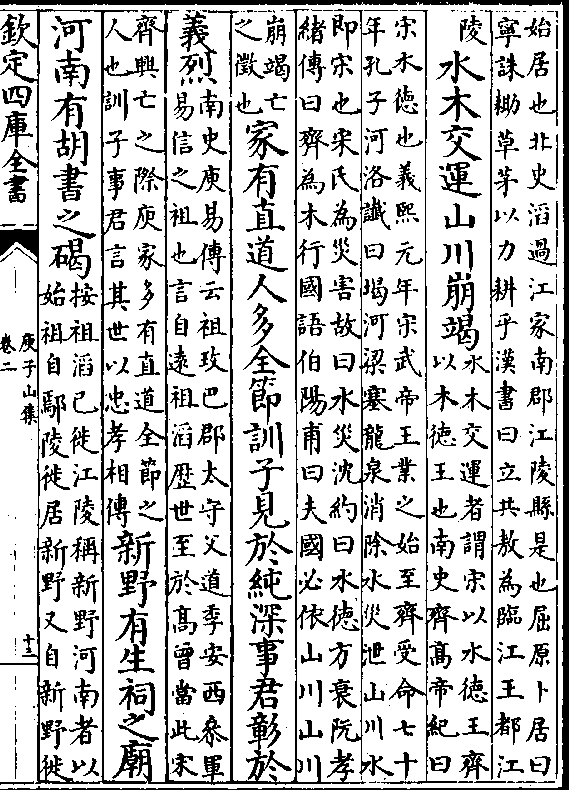 始居也北史滔過江家南郡江陵縣是也屈原卜居曰
寧誅鋤草茅以力耕乎漢書曰立共敖為臨江王都江
陵水木交運山川崩竭水木交運者謂宋以水德王齊
以木德王也南史齊髙帝紀曰
宋水德也義熙元年宋武帝王業之始至齊受命七十
年孔子河洛讖曰堨河梁塞龍泉消除水災泄山川水
即宋也宋氏為災害故曰水災沈約曰水德方衰阮孝
緒傳曰齊為木行國語伯陽甫曰夫國必依山川山川
崩竭亡
之徵也家有直道人多全節訓子見於純深事君彰於
義烈南史庾易傳云祖玫巴郡太守父道季安西叅軍
易信之祖也言自遠祖滔歴世至於髙曾當此宋
齊興亡之際庾家多有直道全節之
人也訓子事君言其世以忠孝相傳新野有生祠之廟
河南有胡書之碣按祖滔已徙江陵稱新野河南者以
始祖自鄢陵徙居新野又自新野徙
欽定四庫全書
庾子山集
卷二
十三